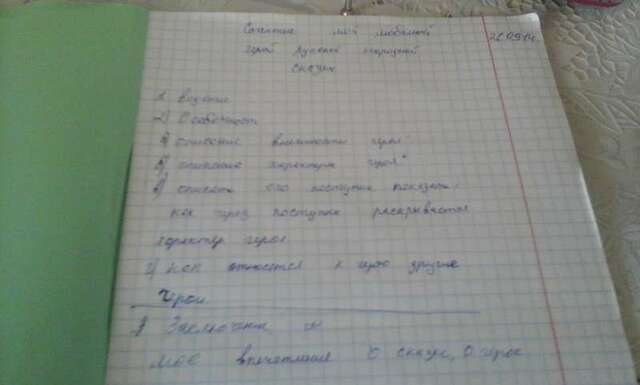 Сочинение мой любимый
герой русской народной
сказки
1. Введение
2)
а) описание внешности героя
б) описание характера героя
в) описать его поступки показать,
как через поступки раскрывается
характер героя
г) как относятся к герою другие
герои
3) Заключение
моё впечатление о сказке, о герое